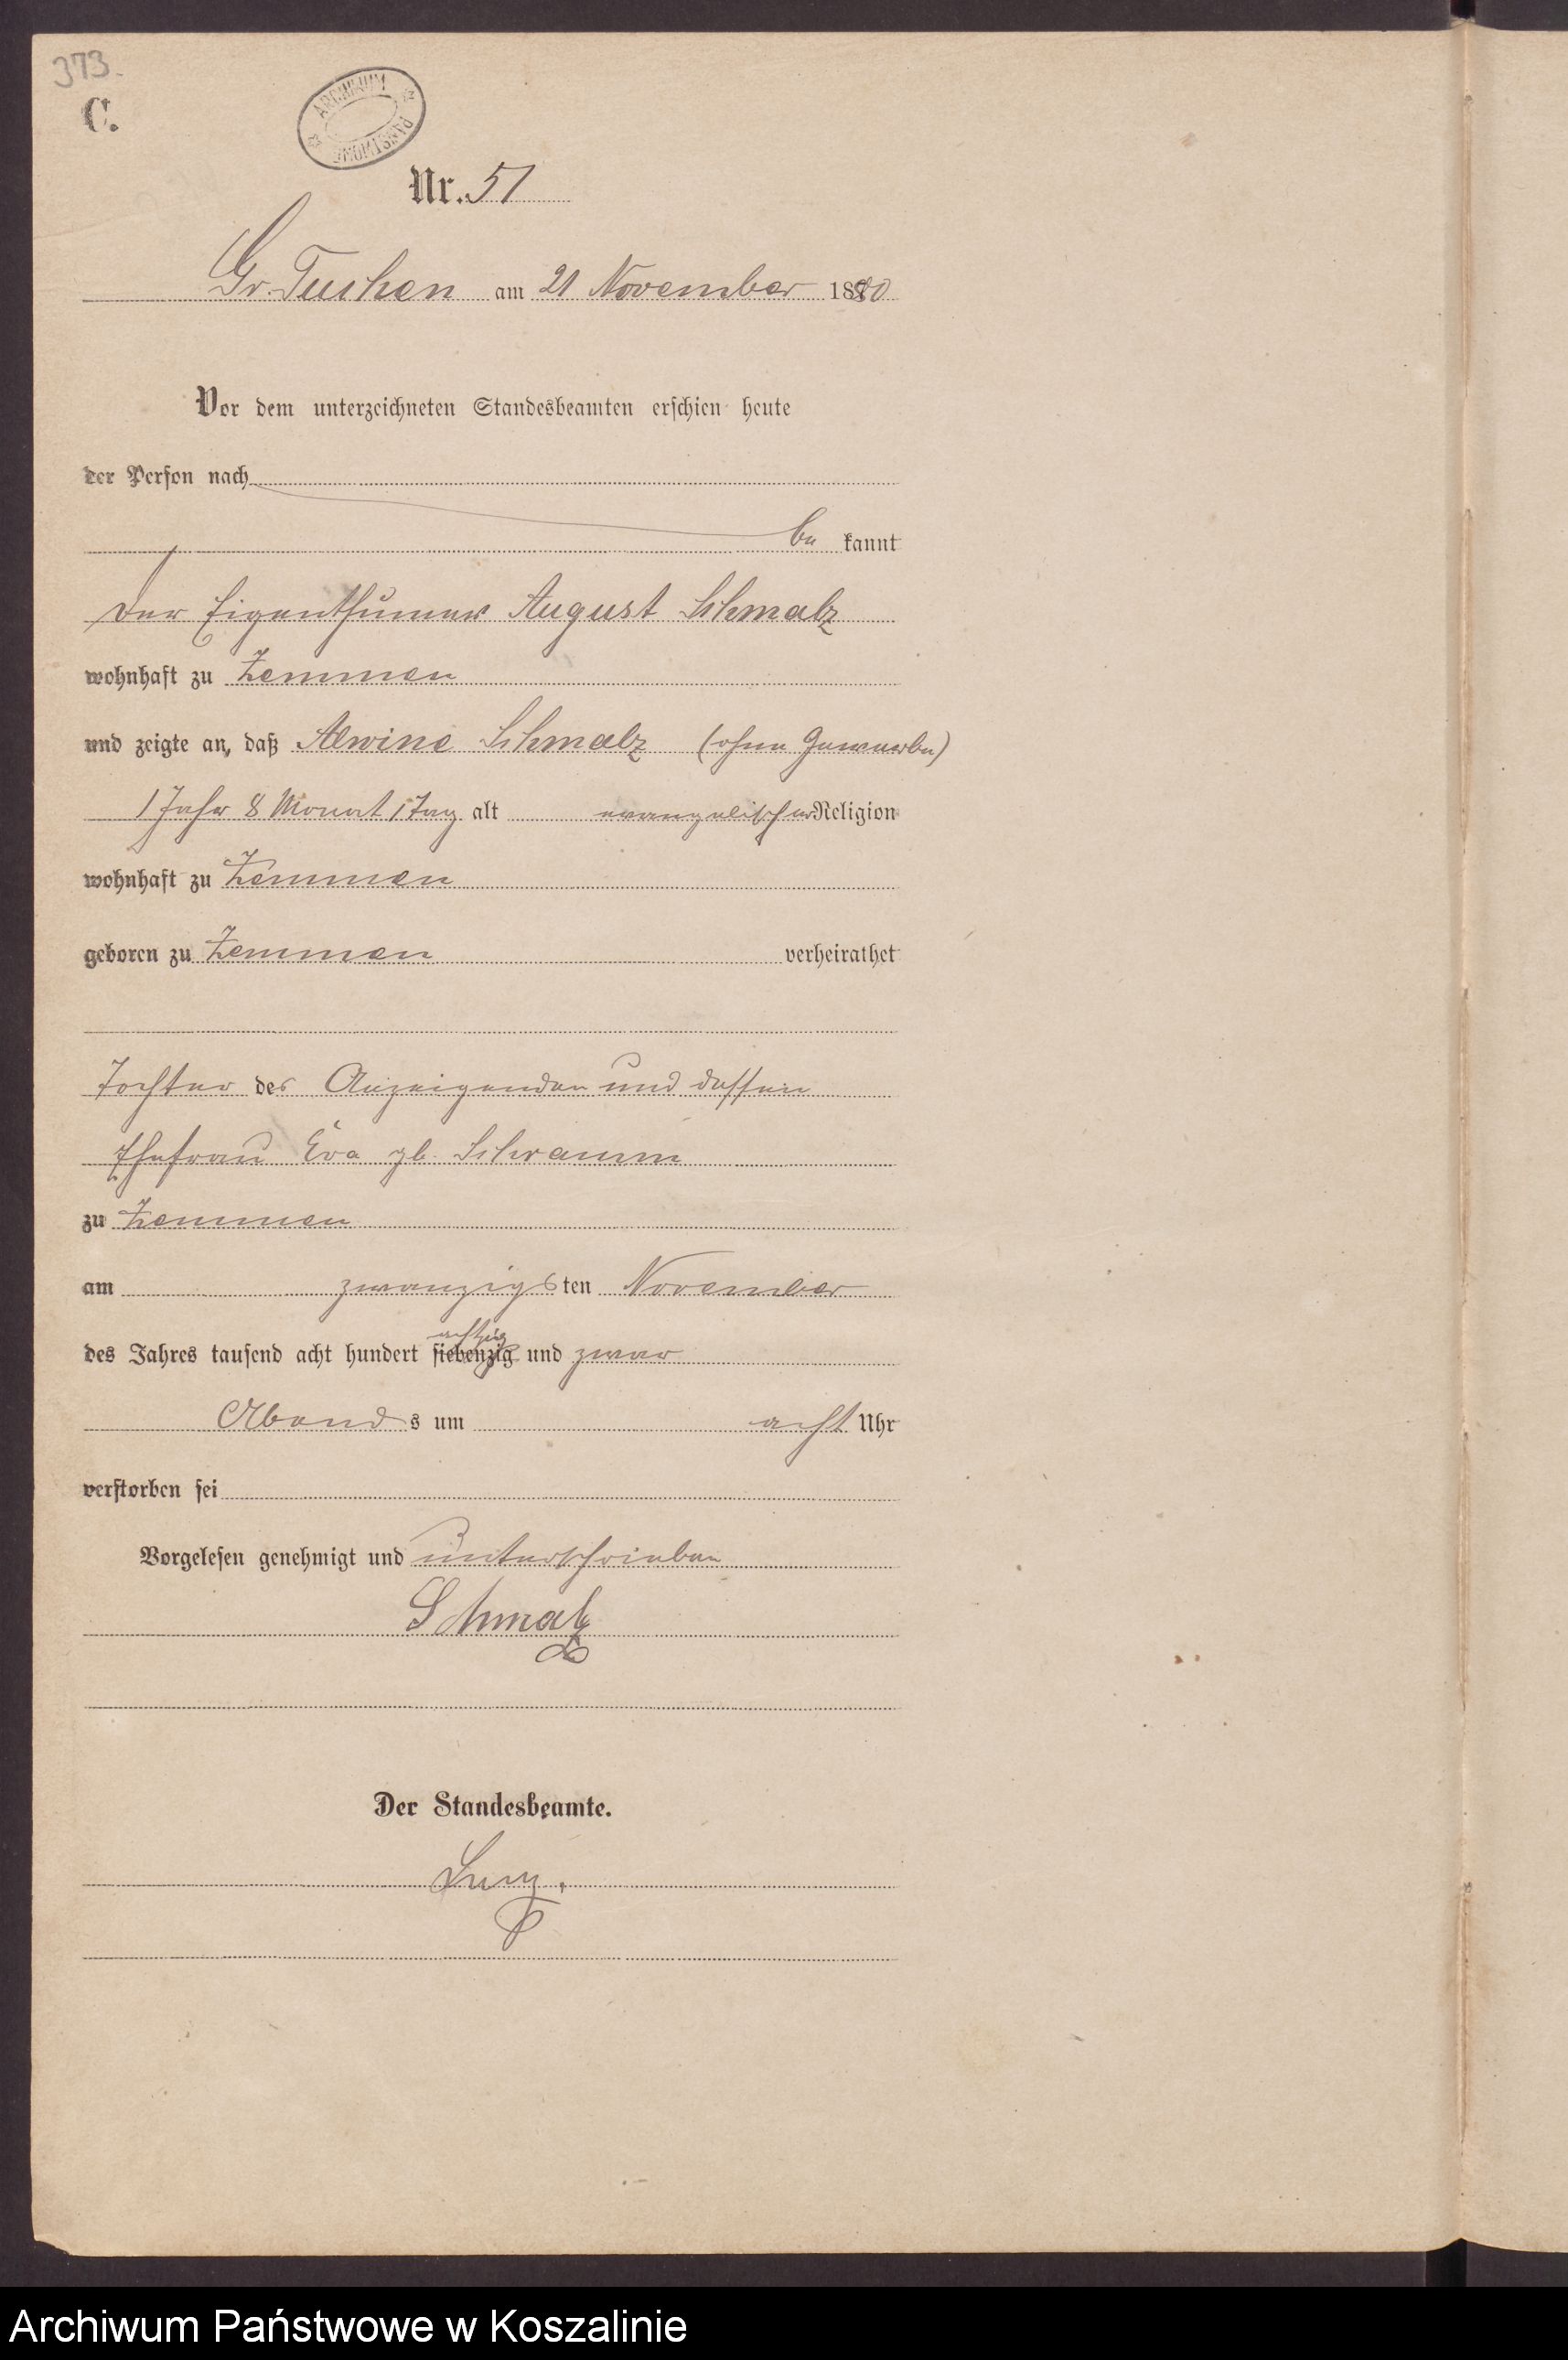 373.
C.
ARCHIWUM PAŃSTWOWE
Nr. 51
Gr. Tuchen am 21 November 1880
Vor dem unterzeichneten Standesbeamten erschien heute
der Person nach
be kannt
der Eigenthümer August Schmalz
wohnhaft zu Zemmen
und zeigte an, daß Alwine Schmalz (ohne Gewerbe)
1 Jahr 8 Monat 1 Tag alt evangelischer Religion
wohnhaft zu Zemmen
geboren zu Zemmen verheirathet
Tochter des Anzeigenden und dessen
Ehefrau Eva gb. Schramm
zu Zemmen
am zwanzigsten November
achtzig
des Jahres tausend acht hundert siebenzig und zwar
Abends um acht Uhr
verstorben sei
Vorgelesen genehmigt und unterschrieben
Schmalz
Der Standesbeamte.
Archiwum Państwowe w Koszalinie